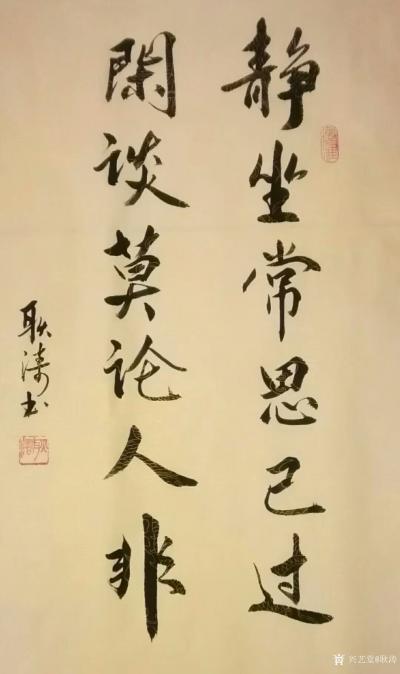 静坐常思己过
閑谈莫论人非
耿涛书
兴艺堂@耿涛